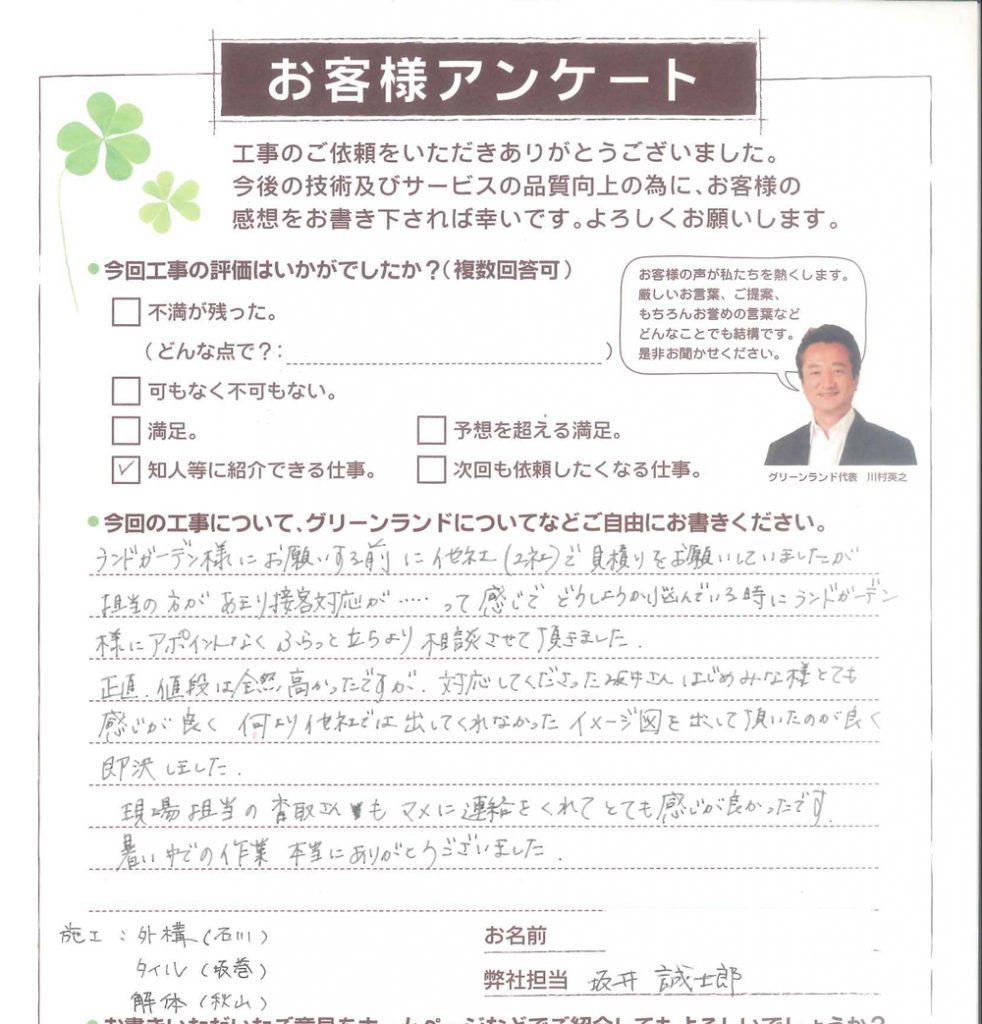 お客様アンケート
工事のご依頼をいただきありがとうございました。
今後の技術及びサービスの品質向上の為に、お客様の
感想をお書き下されば幸いです。よろしくお願いします。
今回工事の評価はいかがでしたか？(複数回答可)
お客様の声が私たちを熱くします。
厳しいお言葉、ご提案、
もちろんお誉めの言葉など
どんなことでも結構です。
是非お聞かせください。
不満が残った。
(どんな点で？: )
可もなく不可もない。
満足。 予想を超える満足。
知人等に紹介できる仕事。 次回も依頼したくなる仕事。
グリーンランド代表 川村英之
今回の工事について、グリーンランドについてなどご自由にお書きください。
ランドガーデン様にお願いする前に他社(2社)で見積りをお願いしていましたが
担当の方があまり接客対応が……って感じでどうしようか悩んでいる時にランドガーデン
様にアポイントなくふらっと立ちより相談させて頂きました.
正直、値段は全然高かったですが、対応してくださった坂井さんはじめみな様とても
感じが良く 何より他社では出してくれなかったイメージ図を出して頂いたのが良く
即決しました.
現場担当の香取さんもマメに連絡をくれてとても感じが良かったです.
暑い中での作業 本当にありがとうございました.
施工：外構(石川)
タイル(坂巻)
解体(秋山)
お名前
弊社担当 坂井 誠士郎
お書きいただいたご意見をホームページなどでご紹介してもよろしいでしょうか？